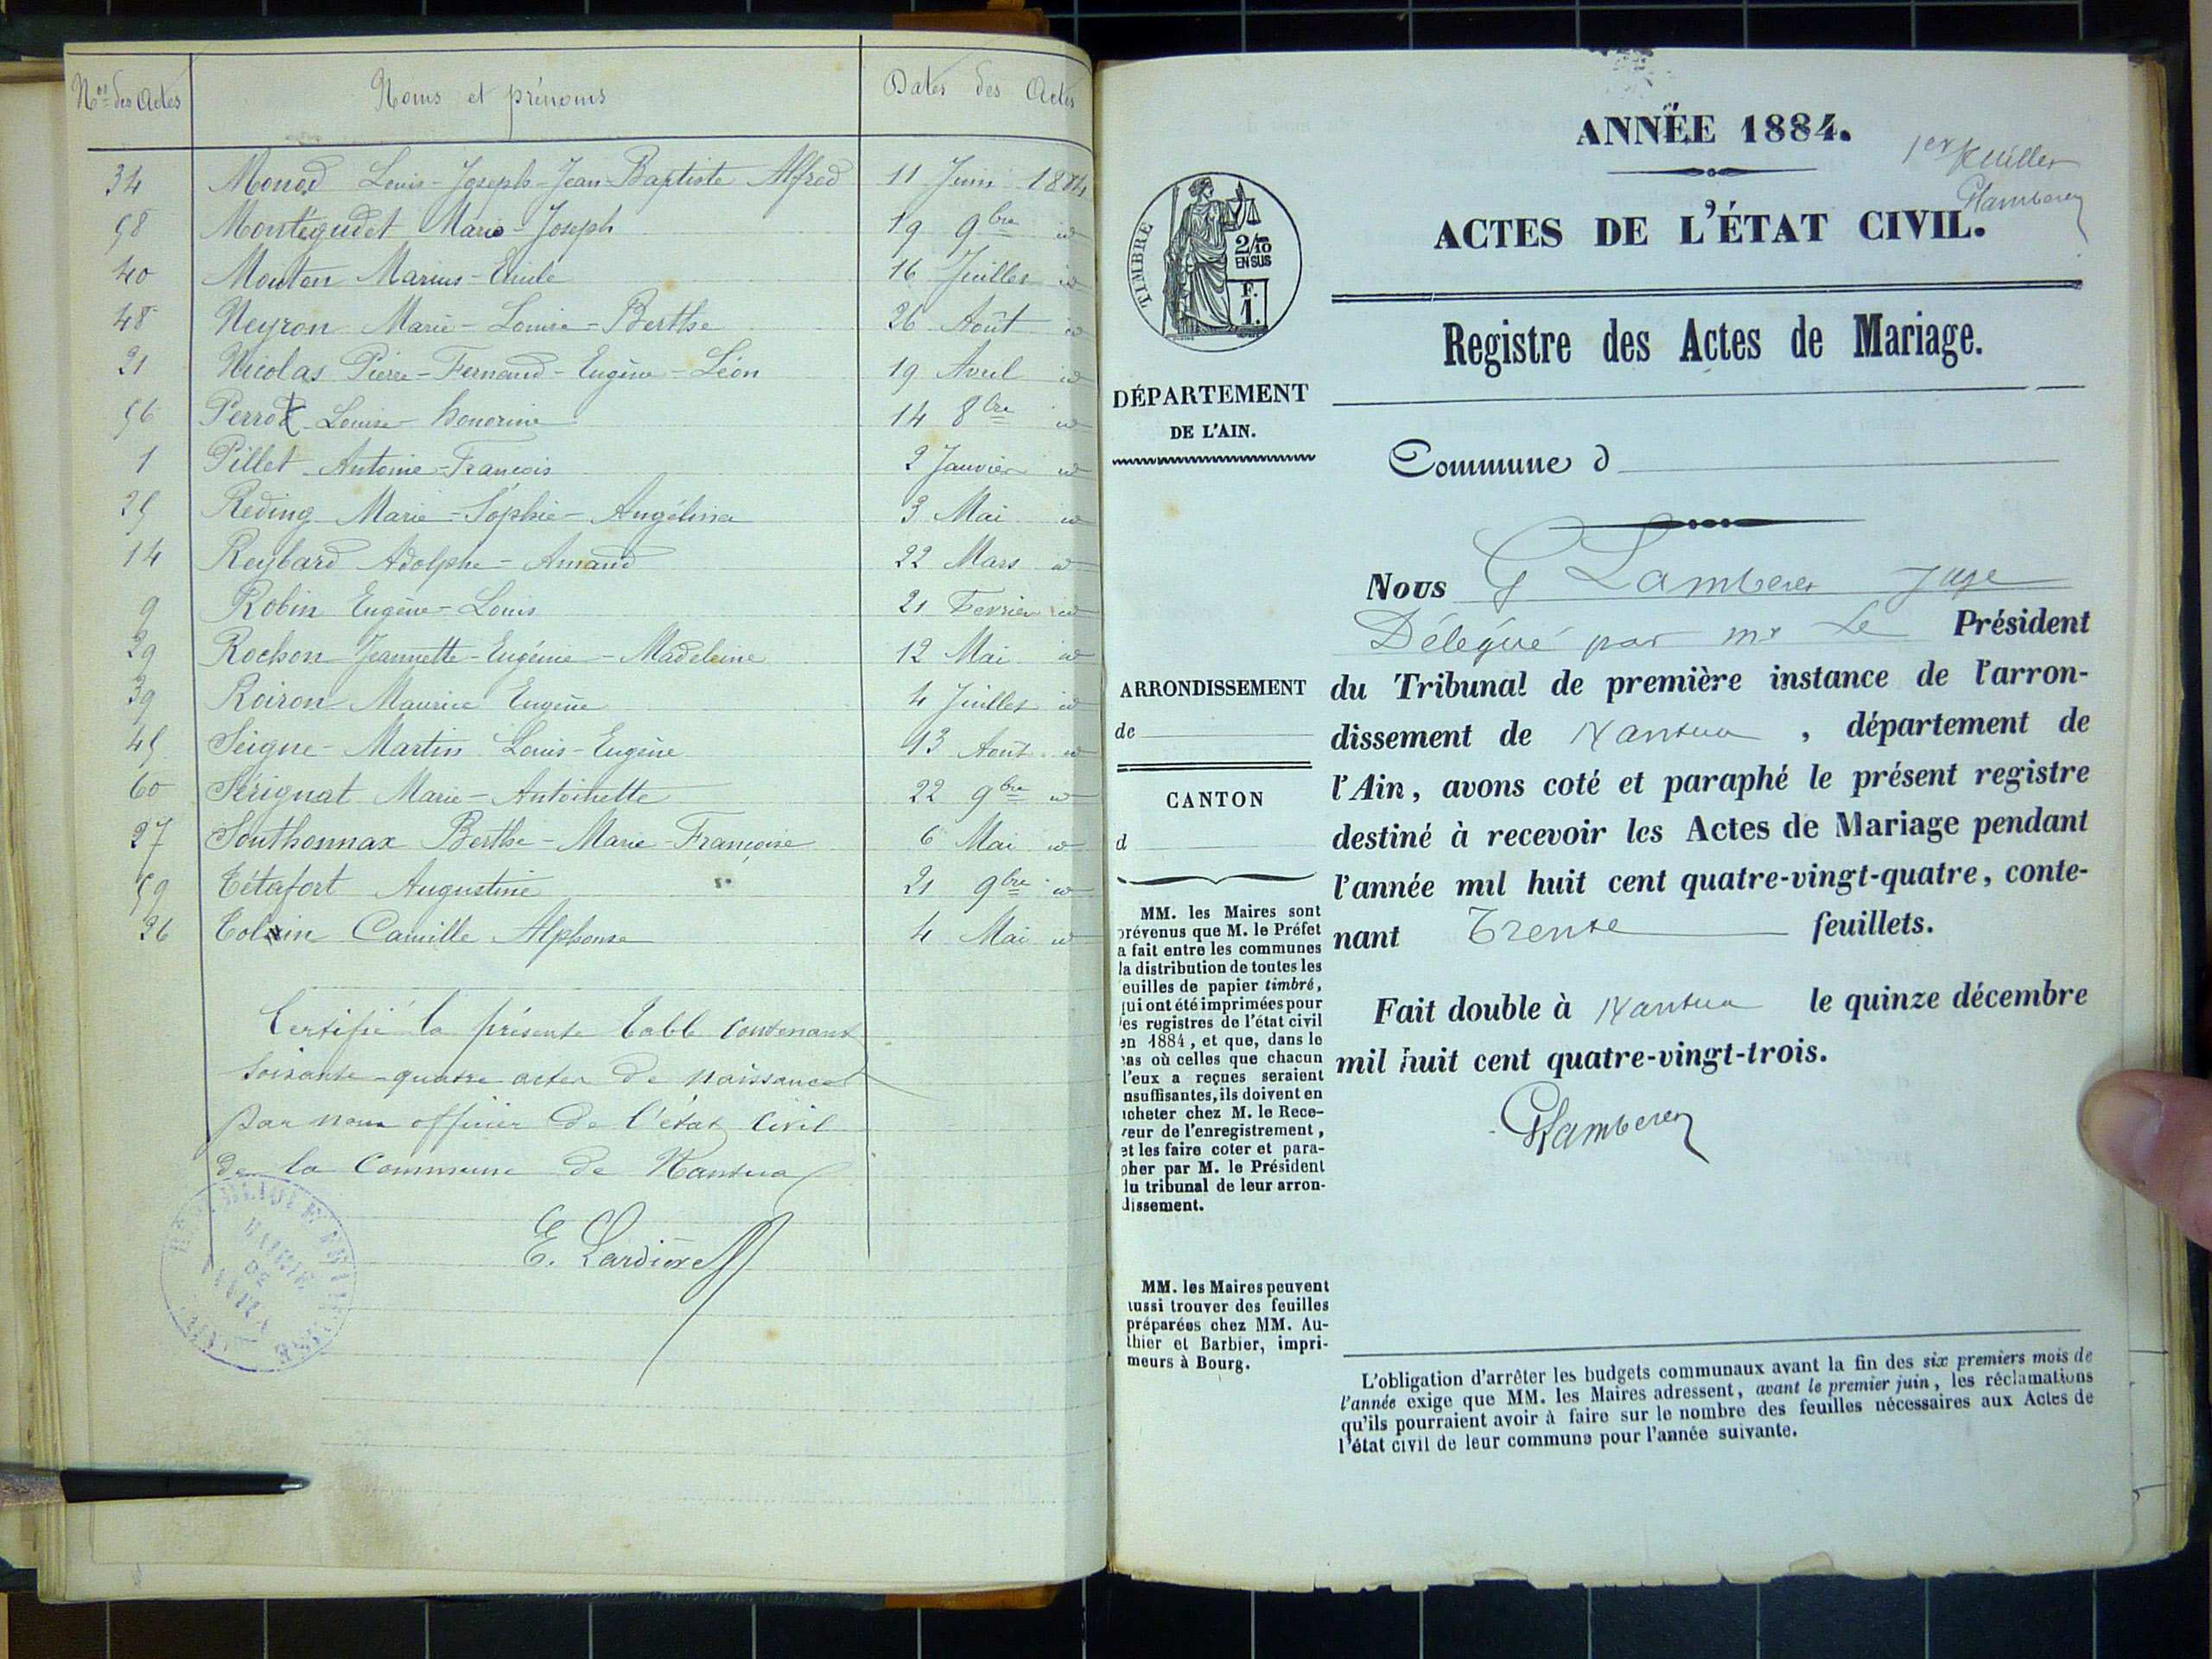 Nos des Actes Noms et prénoms Dates des Actes
34 Monod Louis-Joseph-Jean-Baptiste Alfred 11 Juin 1884
58 Montégudet Marie-Joseph 19 9bre id
40 Mouton Marius-Emile 16 Juillet id
48 Neyron Marie-Louise-Berthe 26 Août id
21 Nicolas Pierre-Fernand-Eugène-Léon 19 Avril id
56 Perrot Louise honorine 14 8bre id
1 Pillet Antoine-François 2 Janvier id
25 Reding Marie-Sophie-Angélina 3 Mai id
14 Reybard Adolphe-Amand 22 Mars id
9 Robin Eugène-Louis 21 Fevrier id
29 Rochon Jeannette-Eugénie-Madeleine 12 Mai id
39 Roiron Maurice Eugène 4 Juillet id
45 Seigne-Martin Louis-Eugène 13 Août id
60 Sérignat Marie-Antoinette 22 9bre id
27 Southonnax Berthe-Marie-Françoise 6 Mai id
59 Tétafort Augustine 21 9bre id
26 Camille Alphonse 4 Mai id
Certifié la présente table contenant
soixante-quatre actes de naissance
par nous officier de l'état civil
de la Commune de Nantua
E. Lardière
MAIRIE
DE
ANNÉE 1884.
1er feuillet
GLamberey
ACTES DE L'ÉTAT CIVIL.
TIMBRE
2/10
EN SUS
F.
1.
Registre des Actes de Mariage.
DÉPARTEMENT
DE L'AIN.
Commune d
Nous G Lamberey Juge
Délégué par mr Le Président
ARRONDISSEMENT
de
CANTON
d
du Tribunal de première instance de l'arron-
dissement de Nantua , département de
l'Ain, avons coté et paraphé le présent registre
destiné à recevoir les Actes de Mariage pendant
l'année mil huit cent quatre-vingt-quatre, conte-
nant Trente feuillets.
Fait double à Nantua le quinze décembre
mil huit cent quatre-vingt-trois.
GLamberey
MM. les Maires sont
prévenus que M. le Préfet
a fait entre les communes
la distribution de toutes les
feuilles de papier timbré,
qui ont été imprimées pour
les registres de l'état civil
en 1884, et que, dans le
cas où celles que chacun
d'eux a reçues seraient
insuffisantes, ils doivent en
acheter chez M. le Rece-
veur de l'enregistrement,
et les faire coter et para-
pher par M. le Président
du tribunal de leur arron-
dissement.
MM. les Maires peuvent
aussi trouver des feuilles
préparées chez MM. Au-
thier et Barbier, impri-
meurs à Bourg.
L'obligation d'arrêter les budgets communaux avant la fin des six premiers mois de
l'année exige que MM. les Maires adressent, avant le premier juin, les réclamations
qu'ils pourraient avoir à faire sur le nombre des feuilles nécessaires aux Actes de
l'état civil de leur commune pour l'année suivante.